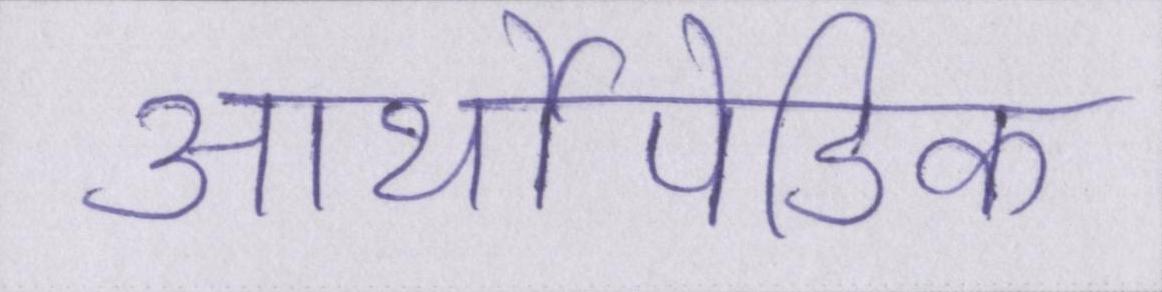 आर्थोपेडिक